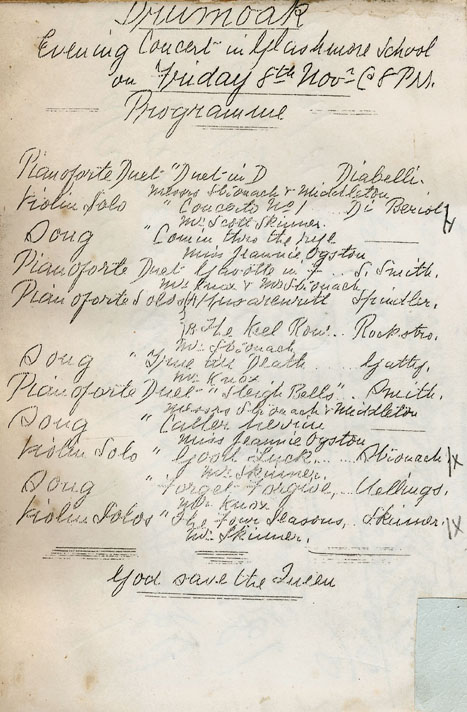 Drumoak
Evening Concert in Glashmore School
on Friday 8th Novr @ 8 P.M.
Programme
Pianoforte Duet "Duet in D Diabelli.
Messrs Stionach & Middleton
Violin Solo " Concerto No De Beriot X
Mr. Scott Skinner.
Song "Comin thro the rye
Miss Jeannie Ogston
Pianoforte Duet Gavotte in F .. S. Smith.
Mr Knox & Mr Stionach
Pianoforte Solos A Husarenritt Spindler.
B The Keel Row .. Rockstro.
Mr Stionach
Song "True till Death Gatty.
Mr. Knox
Pianoforte Duet "Sleigh Bells" .. Smith.
Messrs Stionach & Middleton
Song " Caller Herrin
Miss Jeannie Ogston
Violin Solo " Good Luck .... Stionach X
Mr. Skinner.
Song " Forget Forgive,
Mr. Knox
Violin Solos "The Four Seasons, Skinner. X
Mr. Skinner.
God save the Queen